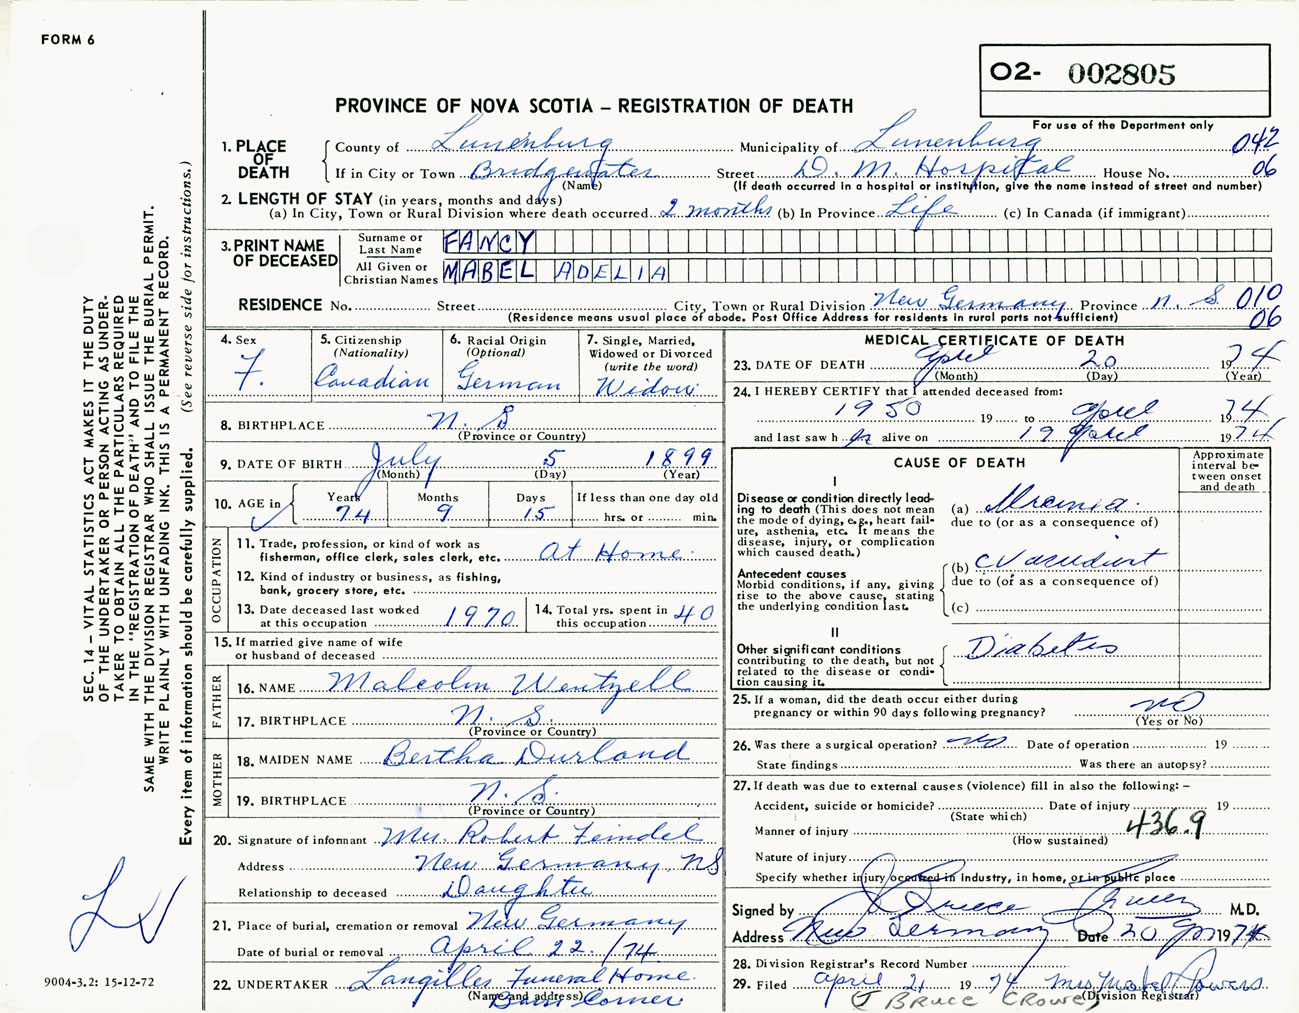 FORM 6
O2- 002805
For use of the Department only
PROVINCE OF NOVA SCOTIA – REGISTRATION OF DEATH
042
06
1. PLACE OF DEATH
County of Lunenburg Municipality of Lunenburg
If in City or Town Bridgewater Street D. M. Hospital House No.
(Name) (If death occurred in a hospital or institution, give the name instead of street and number)
2. LENGTH OF STAY (in years, months and days)
(a) In City, Town or Rural Division where death occurred 2 months (b) In Province Life (c) In Canada (if immigrant)
3. PRINT NAME OF DECEASED
Surname or Last Name FANCY
All Given or Christian Names MABEL ADELIA
RESIDENCE No. Street City, Town or Rural Division New Germany Province N. S. 010
(Residence means usual place of abode. Post Office Address for residents in rural parts not sufficient) 06
4. Sex F.
5. Citizenship (Nationality) Canadian
6. Racial Origin (Optional) German
7. Single, Married, Widowed or Divorced (write the word) Widow
8. BIRTHPLACE N. S
(Province or Country)
9. DATE OF BIRTH July 5 1899
(Month) (Day) (Year)
10. AGE in Years 74 Months 9 Days 15 If less than one day old hrs. or min.
OCCUPATION
11. Trade, profession, or kind of work as fisherman, office clerk, sales clerk, etc. At Home
12. Kind of industry or business, as fishing, bank, grocery store, etc.
13. Date deceased last worked at this occupation 1970
14. Total yrs. spent in this occupation 40
15. If married give name of wife or husband of deceased
FATHER
16. NAME Malcolm Wentzell
17. BIRTHPLACE N. S.
(Province or Country)
MOTHER
18. MAIDEN NAME Bertha Durland
19. BIRTHPLACE N. S.
(Province or Country)
20. Signature of informant Mrs. Robert Feindel
Address New Germany, NS
Relationship to deceased Daughter
21. Place of burial, cremation or removal New Germany
Date of burial or removal April 22. /74
22. UNDERTAKER Langilles Funeral Home
(Name and address) Corner
MEDICAL CERTIFICATE OF DEATH
23. DATE OF DEATH April 20 1974
(Month) (Day) (Year)
24. I HEREBY CERTIFY that I attended deceased from:
1950 19 to April 1974
and last saw her alive on 19 April 1974
CAUSE OF DEATH
Approximate interval between onset and death
I
Disease or condition directly leading to death (This does not mean the mode of dying, e.g., heart failure, asthenia, etc. It means the disease, injury, or complication which caused death.)
(a) Uremia.
due to (or as a consequence of)
Antecedent causes
Morbid conditions, if any, giving rise to the above cause, stating the underlying condition last.
(b) C V accident
due to (or as a consequence of)
(c)
II
Other significant conditions contributing to the death, but not related to the disease or condition causing it.
Diabetes
25. If a woman, did the death occur either during pregnancy or within 90 days following pregnancy? no
(Yes or No)
26. Was there a surgical operation? no Date of operation 19
State findings Was there an autopsy?
27. If death was due to external causes (violence) fill in also the following: –
Accident, suicide or homicide? Date of injury 19
(State which)
Manner of injury 436.9
(How sustained)
Nature of injury
Specify whether injury occurred in industry, in home, or in public place
Signed by J Bruce Crowe M.D.
Address New Germany Date 20 Apr 1974
28. Division Registrar's Record Number
29. Filed April 21 1974 Mrs Mabel Powers
(Division Registrar)
J BRUCE CROWE
SEC. 14 – VITAL STATISTICS ACT MAKES IT THE DUTY
OF THE UNDERTAKER OR PERSON ACTING AS UNDER-
TAKER TO OBTAIN ALL THE PARTICULARS REQUIRED
IN THE "REGISTRATION OF DEATH" AND TO FILE THE
SAME WITH THE DIVISION REGISTRAR WHO SHALL ISSUE THE BURIAL PERMIT.
WRITE PLAINLY WITH UNFADING INK. THIS IS A PERMANENT RECORD.
Every item of information should be carefully supplied. (See reverse side for instructions.)
9004-3.2: 15-12-72